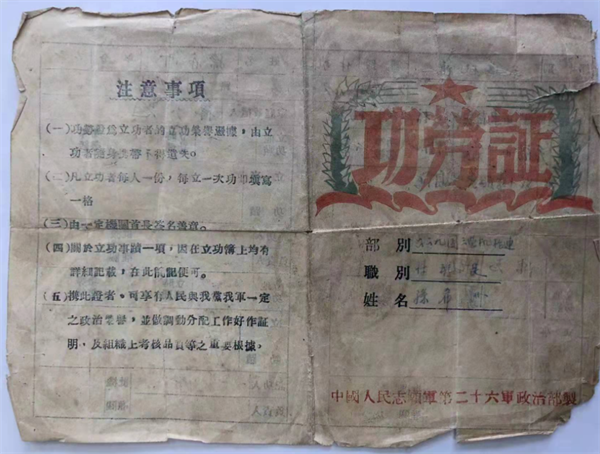 注意事項
(一)功勞證爲立功者的立功榮譽證據，由立
功者隨身攜帶不得遺失。
(二)凡立功者每人一份，每立一次功即填寫
一格
(三)由一定機關首長簽名蓋章。
(四)關於立功事蹟一項，因在立功簿上均有
詳細記載，在此僅記便可。
(五)携此證者，可享有人民與我黨我軍一定
之政治榮譽，並做調動分配工作好作証
明，及組織上考核品質等之重要根據，
功劳証
部別
職別
姓名 孫
中國人民志願軍第二十六軍政治部製